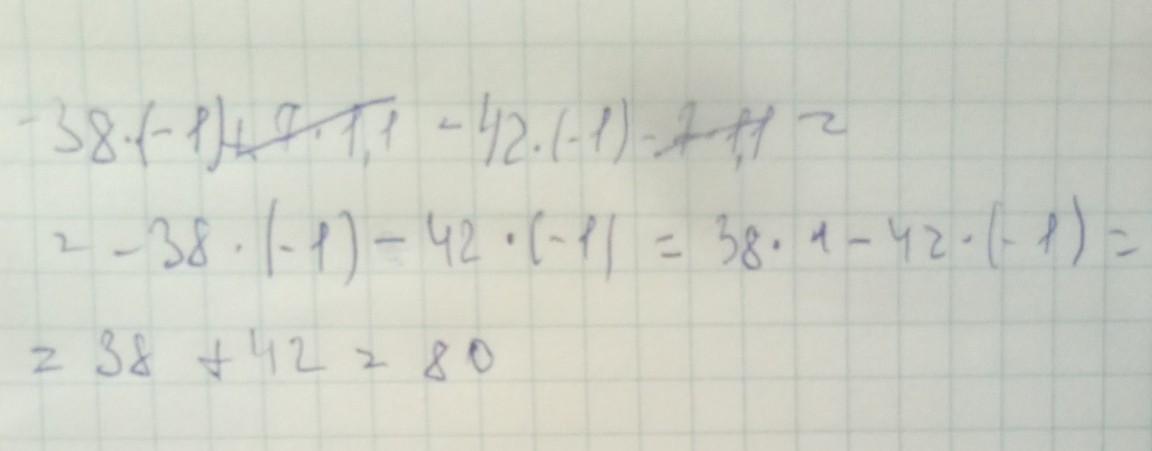 -38·(-1)+7·1,1 -42·(-1)-7·1,1 =
= -38·(-1)-42·(-1) = 38·1-42·(-1) =
= 38 + 42 = 80